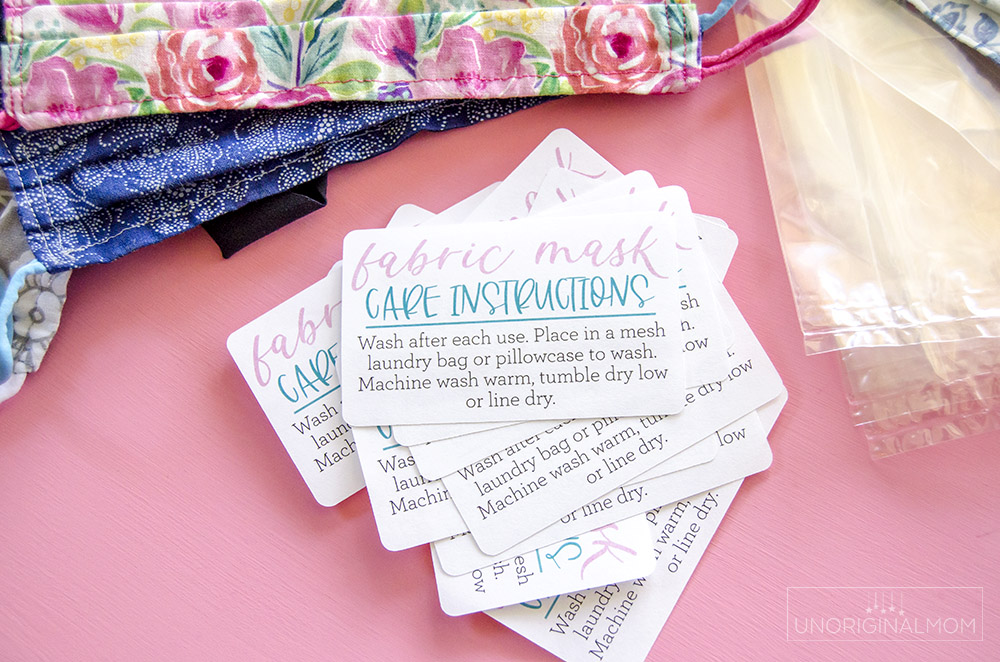 fabric mask
CARE INSTRUCTIONS
Wash after each use. Place in a mesh
laundry bag or pillowcase to wash.
Machine wash warm, tumble dry low
or line dry.
sk
k
k
fabr
CARE
Wash
laun
Machi
sh
n.
low
Was
la
Machine
Wash after eac
laundry bag or pil
Machine wash warm, tumble dry low
or line dry.
low
or line dry.
k
S
esh
h.
low
dry
Wash
laundry
Machine
warm,
or line dry.
UNORIGINALMOM